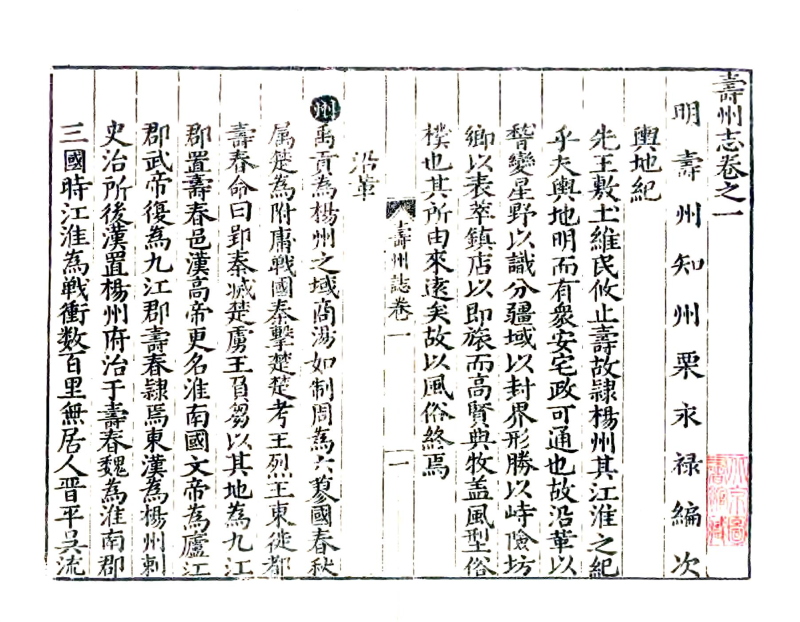 壽州志卷之一
明壽州知州栗永祿編次
輿地紀
先王敷土維民攸止壽故隷楊州其江淮之紀
乎夫輿地明而有衆安宅政可通也故沿革以
稽變星野以識分疆域以封界形勝以峙險坊
鄉以表萃鎮店以即旅而高賢典牧盖風型俗
樸也其所由來遠矣故以風俗終焉
壽州誌卷一
一
沿革
州禹貢為楊州之域商湯如制周為六蓼國春秋
属楚為附庸戰國秦擊楚楚考王烈王東徙都
壽春命曰郢秦滅楚虜王負芻以其地為九江
郡置壽春邑漢高帝更名淮南國文帝為廬江
郡武帝復為九江郡壽春隷焉東漢為楊州刺
史治所後漢置楊州府治于壽春魏為淮南郡
三國時江淮為戰衝数百里無居人晋平吳流